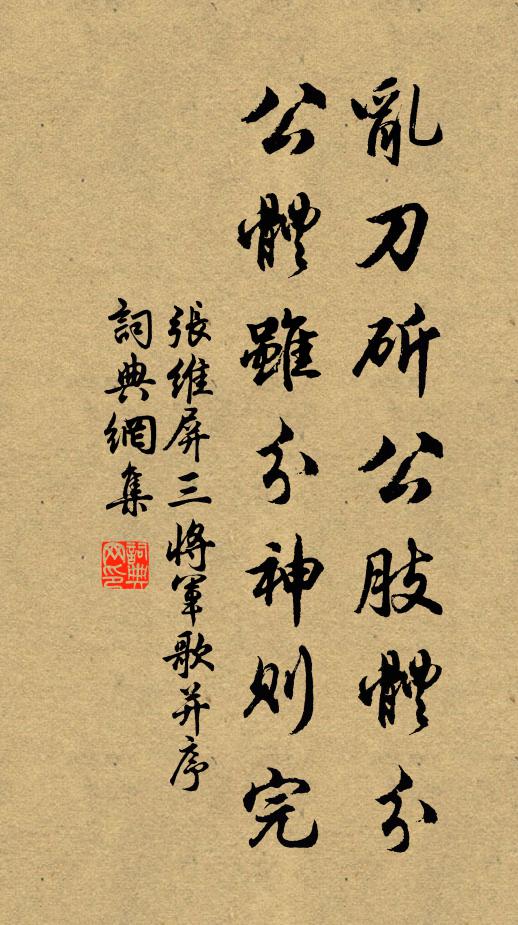 亂刀斫公肢體分
公體雖分神則完
張維屏三將軍歌并序
詞典網集
詞典網印